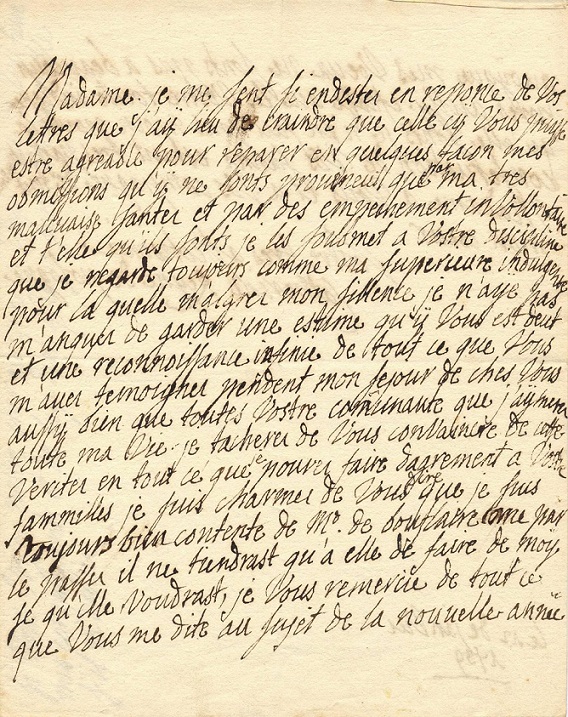 Madame je me sent si endester en reponce de Vos
lettres que j'ay lieu de craindre que celle cy Vous puisse
estre agreable pour reparer en quelques facon mes
obmissions qu'y ne sonts proveneus que par ma tres
mauvaise santer et par des empechement involontaire
et t'elle qu'ils sonts je les soumet a Vostre discipline
que je regarde toujours comme ma superieure indulgente
pour la quelle malgrer mon sillence je n'aye pas
m'anquer de garder une estime qu'y Vous est deut
et une reconnoissance infinie de tout ce que Vous
m'aver temoigner pendent mon sejour de ches Vous
aussy bien que toutes Vostre comunauté que j'aymerer
toute ma Vie je tacherer de Vous convaincre de cette
Veriter en tout ce que je pourer faire dagrement a Vostre
fammilles je suis charmer de Vous dire que je suis
toujours bien contente de Me. de par
le passer il ne tiendrast qu'a elle de faire de moy
se qu'elle Voudrast, je Vous remercie de tout ce
que Vous me dite au sujet de la nouvelle année